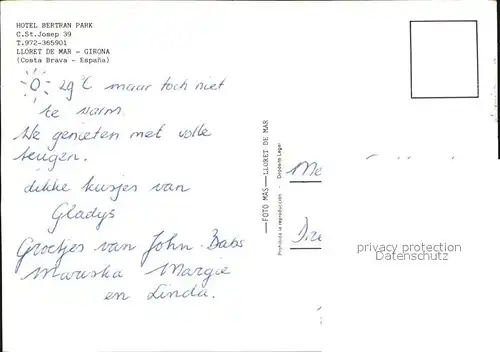 HOTEL BERTRAN PARK
C.St.Josep 39
T.972-365901
LLORET DE MAR - GIRONA
(Costa Brava - España)
29°C maar toch niet
te warm.
We genieten met volle
teugen.
dikke kusjes van
Gladys
Groetjes van John - Babs
Maruska Margie
en Linda.
FOTO MAS — LLORET DE MAR
Prohibida la reproducción - Depósito Legal
Me
privacy protection
Datenschutz